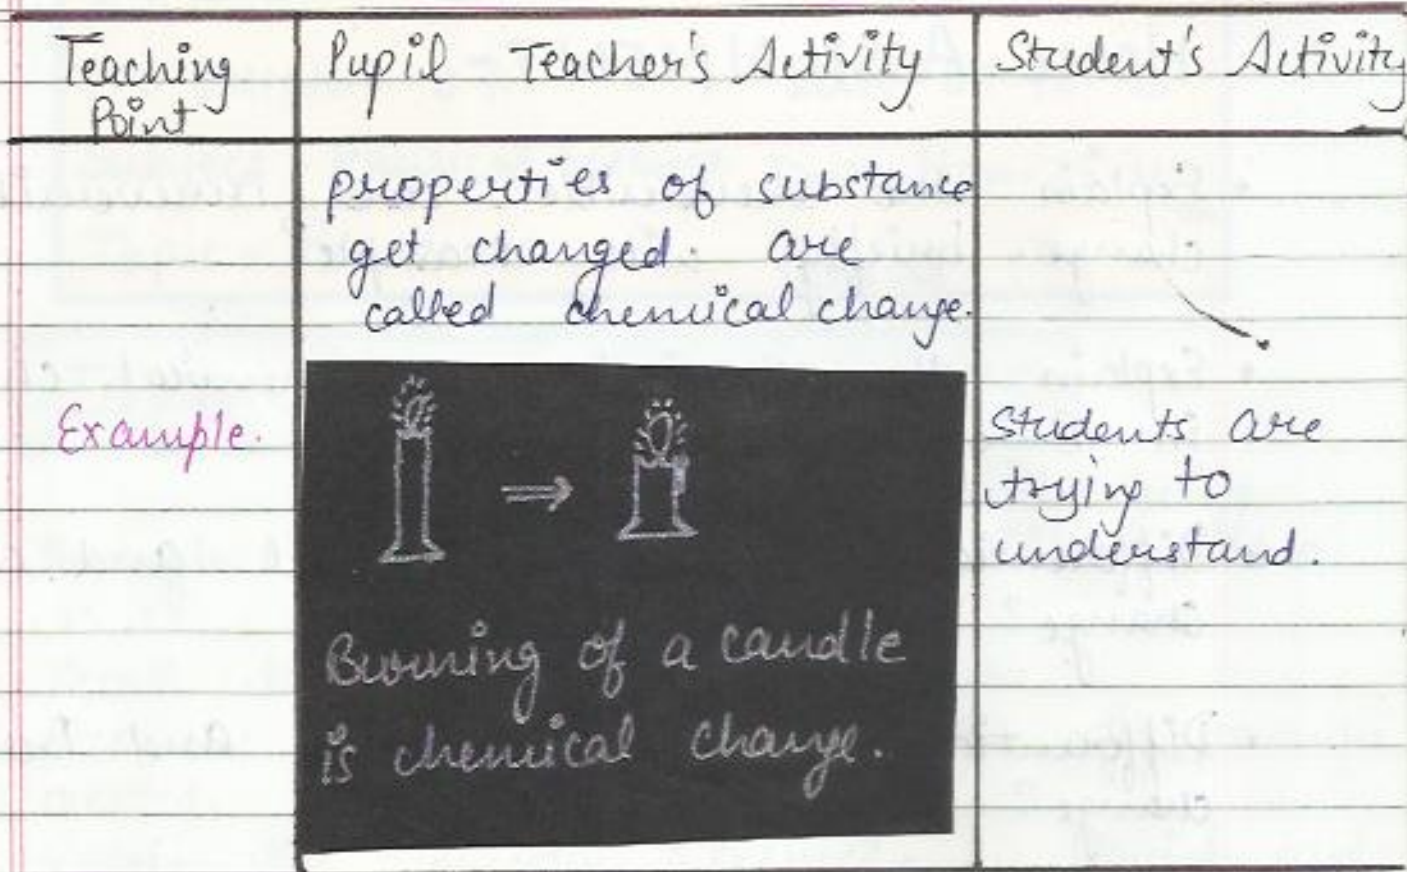 Teaching Point
Pupil Teacher's Activity
Student's Activity
properties of substance
get changed. are
called chemical change.
Example.
Burning of a candle
is chemical change.
Students are
trying to
understand.